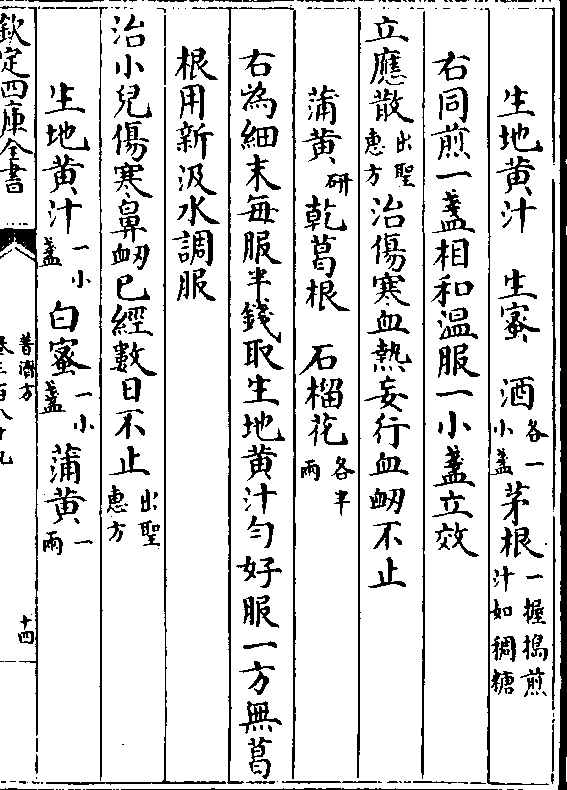 生地黄汁　生蜜　酒各一小盞茅根一握搗煎汁如稠糖
右同煎一盞相和温服一小盞立效
立應散出聖惠方治傷寒血熱妄行血衂不止
蒲黄研乾葛根　石榴花各半兩
右為細末毎服半錢取生地黄汁勻好服一方無葛
根用新汲水調服
治小兒傷寒鼻衂已經數日不止出聖惠方
生地黄汁一小盞白蜜一小盞蒲黄一兩
欽定四庫全書
普濟方
卷三百八十九
十四